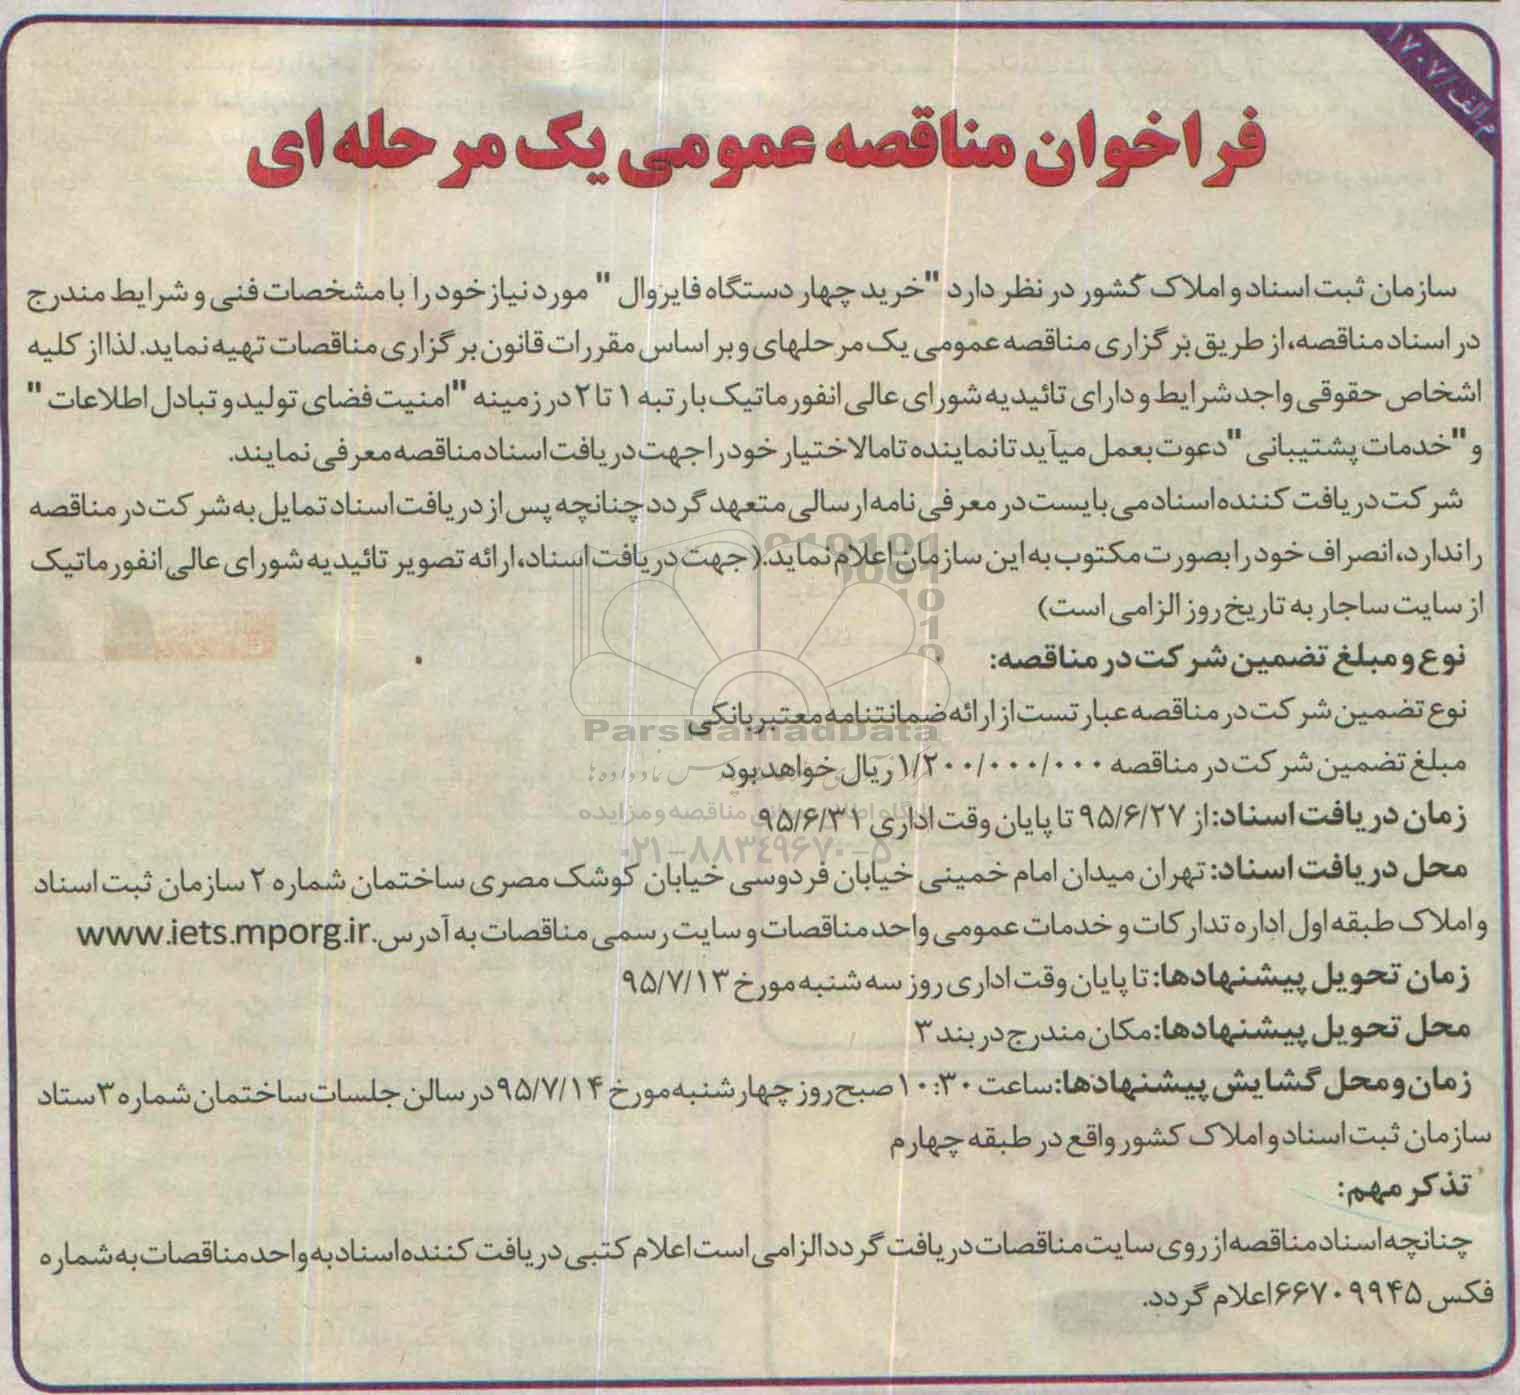 م.الف/۱۷۰۷
فراخوان مناقصه عمومی یک مرحله ای
سازمان ثبت اسناد و املاک کشور در نظر دارد "خرید چهار دستگاه فایروال " مورد نیاز خود را با مشخصات فنی و شرایط مندرج
در اسناد مناقصه، از طریق برگزاری مناقصه عمومی یک مرحلهای و بر اساس مقررات قانون برگزاری مناقصات تهیه نماید. لذا از کلیه
اشخاص حقوقی واجد شرایط و دارای تائیدیه شورای عالی انفورماتیک با رتبه ۱ تا ۲ در زمینه "امنیت فضای تولید و تبادل اطلاعات "
و "خدمات پشتیبانی "دعوت بعمل میآید تا نماینده تام‌الاختیار خود را جهت دریافت اسناد مناقصه معرفی نمایند.
شرکت دریافت کننده اسناد می بایست در معرفی نامه ارسالی متعهد گردد چنانچه پس از دریافت اسناد تمایل به شرکت در مناقصه
را ندارد، انصراف خود را بصورت مکتوب به این سازمان اعلام نماید.( جهت دریافت اسناد، ارائه تصویر تائیدیه شورای عالی انفورماتیک
از سایت ساجار به تاریخ روز الزامی است)
نوع و مبلغ تضمین شرکت در مناقصه:
نوع تضمین شرکت در مناقصه عبارتست از ارائه ضمانتنامه معتبر بانکی
ParsNamadData
مبلغ تضمین شرکت در مناقصه ۱/۲۰۰/۰۰۰/۰۰۰ ریال خواهد بود
زمان دریافت اسناد: از ۹۵/۶/۲۷ تا پایان وقت اداری ۹۵/۶/۳۱
مناقصه و مزایده
۰۲۱-۸۸۳۴۹۶۷۰-۵
محل دریافت اسناد: تهران میدان امام خمینی خیابان فردوسی خیابان کوشک مصری ساختمان شماره ۲ سازمان ثبت اسناد
و املاک طبقه اول اداره تدارکات و خدمات عمومی واحد مناقصات و سایت رسمی مناقصات به آدرس.www.iets.mporg.ir
زمان تحویل پیشنهادها: تا پایان وقت اداری روز سه شنبه مورخ ۹۵/۷/۱۳
محل تحویل پیشنهادها: مکان مندرج در بند ۳
زمان و محل گشایش پیشنهادها: ساعت ۱۰:۳۰ صبح روز چهارشنبه مورخ ۹۵/۷/۱۴ در سالن جلسات ساختمان شماره ۳ ستاد
سازمان ثبت اسناد و املاک کشور واقع در طبقه چهارم
تذکر مهم:
چنانچه اسناد مناقصه از روی سایت مناقصات دریافت گردد الزامی است اعلام کتبی دریافت کننده اسناد به واحد مناقصات به شماره
فکس ۶۶۷۰۹۹۴۵ اعلام گردد.